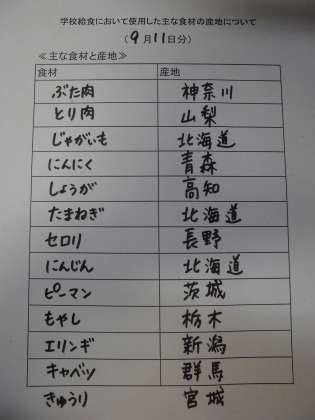 学校給食において使用した主な食材の産地について
(9月11日分)
≪主な食材と産地≫
食材 産地
ぶた肉 神奈川
とり肉 山梨
じゃがいも 北海道
にんにく 青森
しょうが 高知
たまねぎ 北海道
セロリ 長野
にんじん 北海道
ピーマン 茨城
もやし 栃木
エリンギ 新潟
キャベツ 群馬
きゅうり 宮城